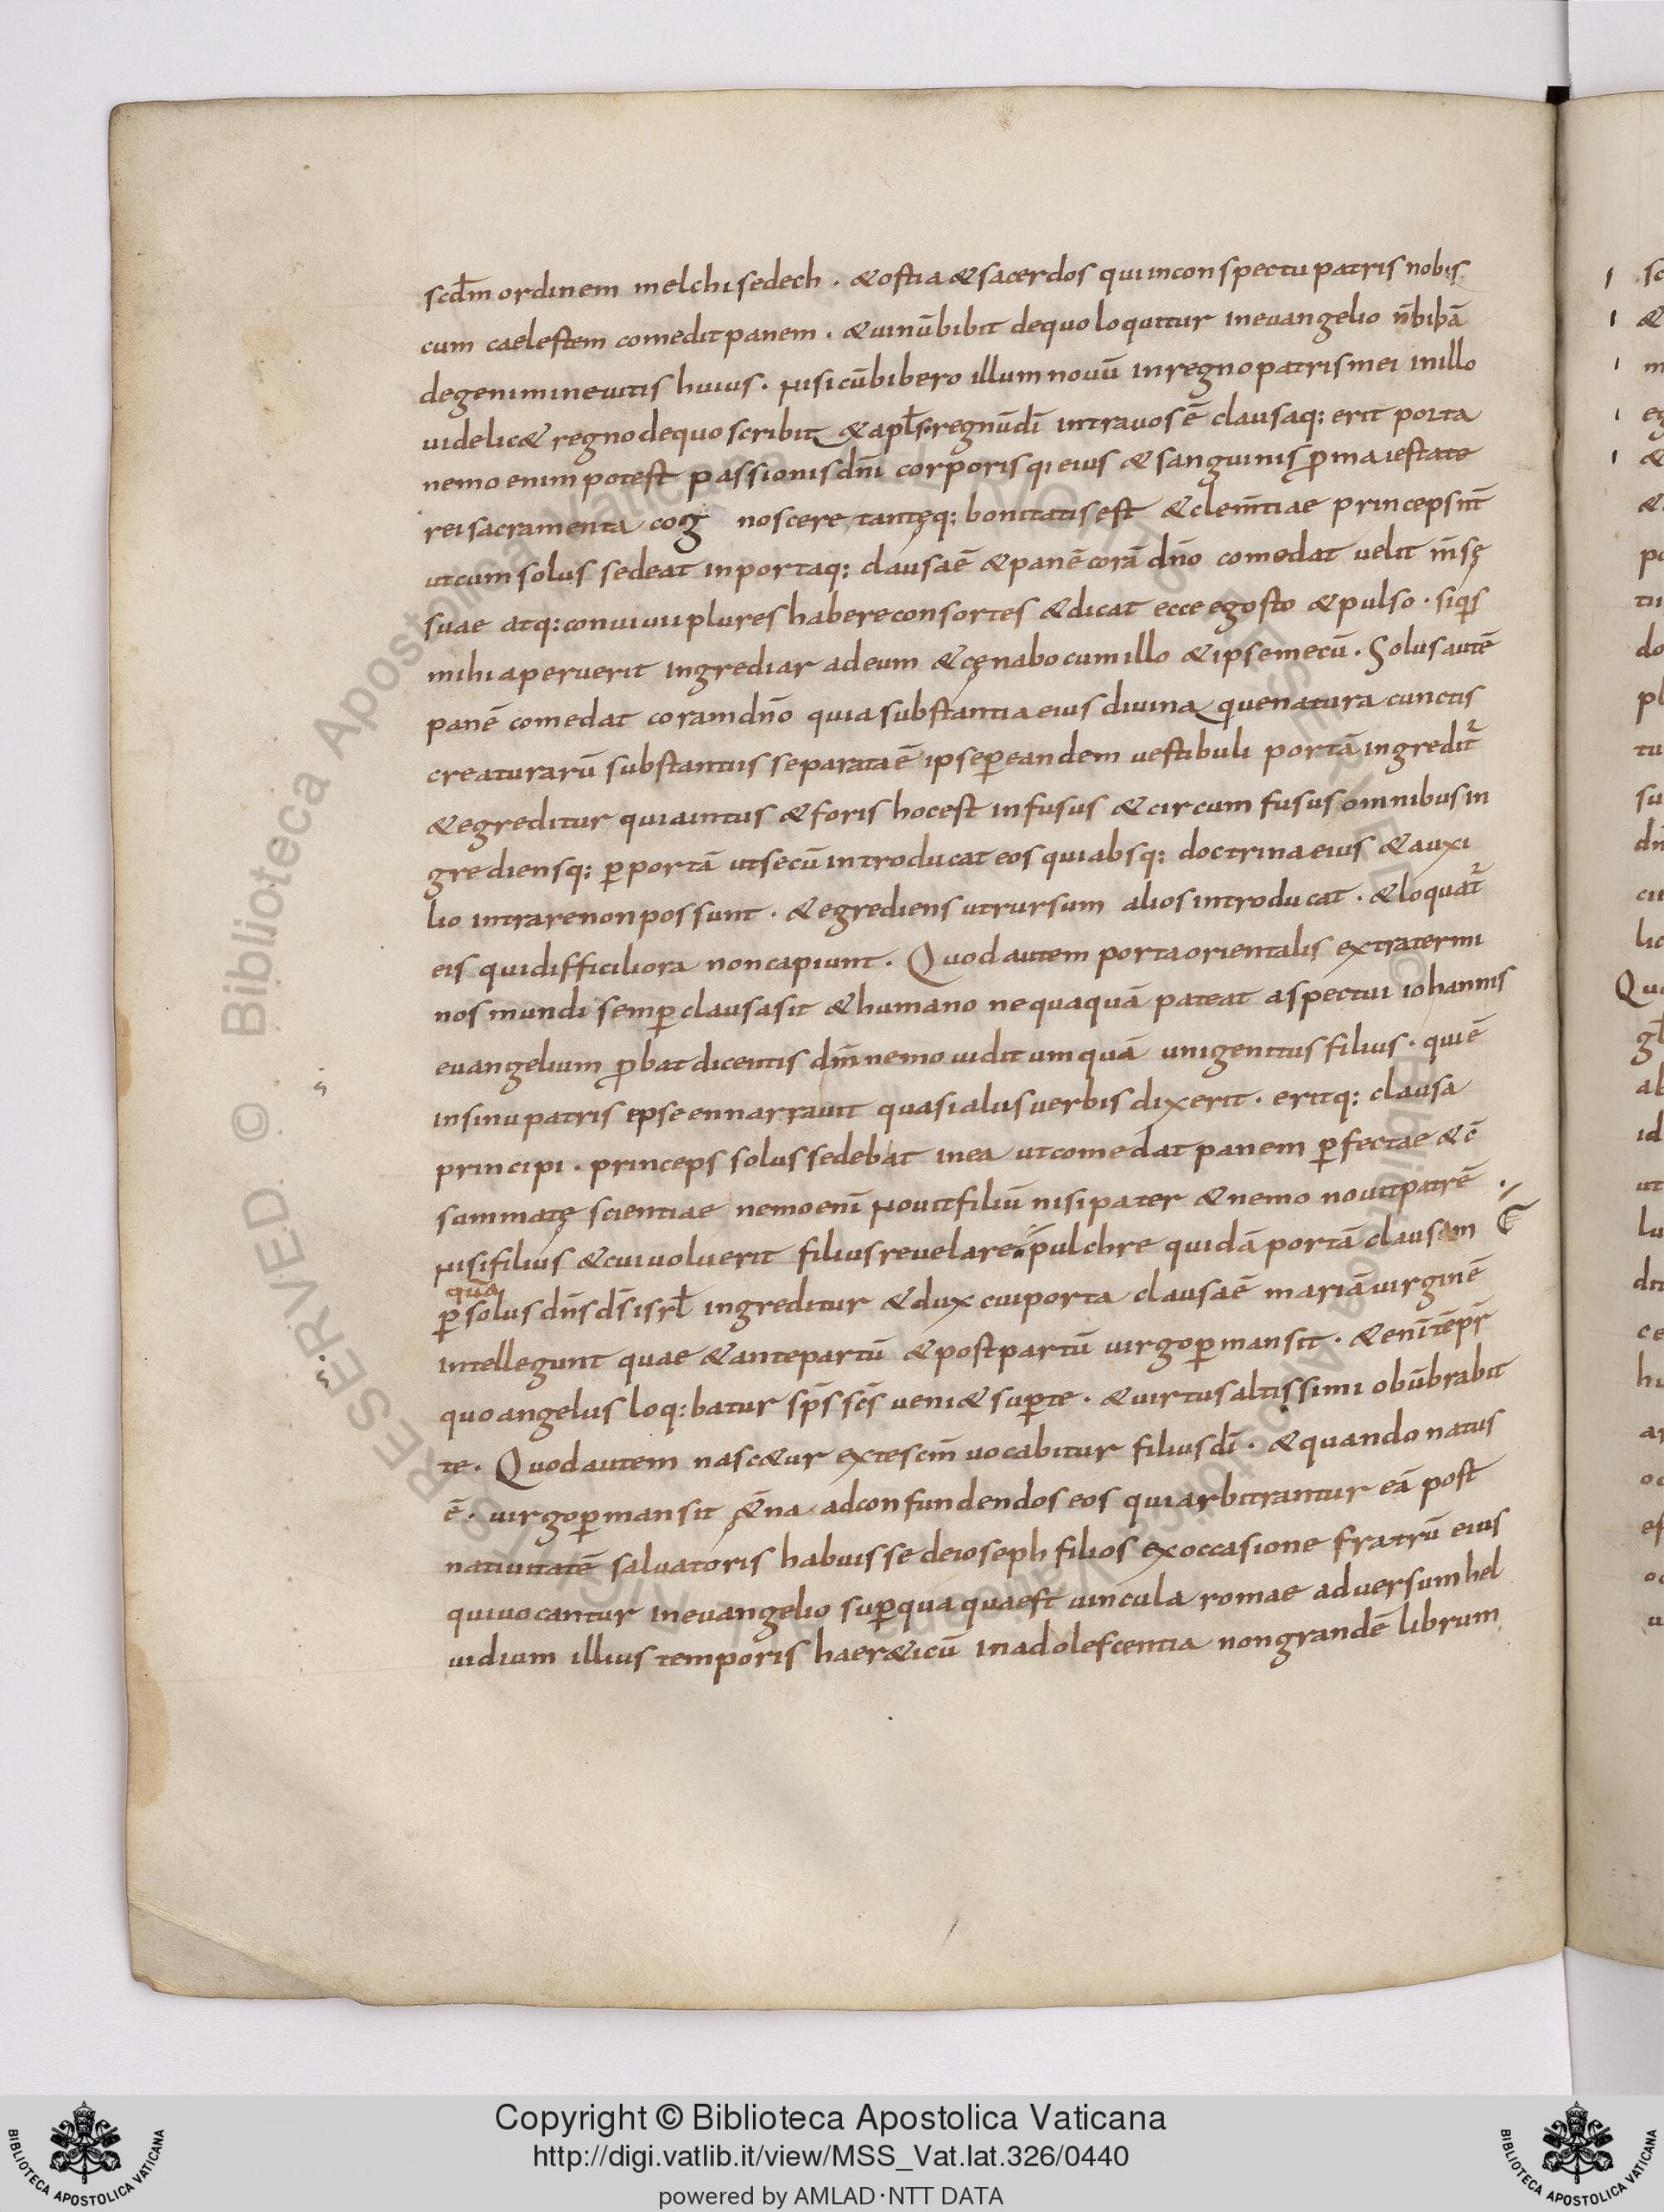 scdm̄ ordinem melchisedech · & ostia & sacerdos qui in conspectu patris nobis
cum caelestem comedit panem · & uinū bibit de quo loquitur in euangelio n̄ bibā
de genimine uitis huius · nisi cū bibero illum nouū in regno patris mei in illo
uidelic& regno de quo scribit & apl̄s regnū dī intra uos ē clausaq: erit porta
nemo enim potest passionis dn̄i corporisq; eius & sanguinis ꝓ maiestate
rei sacramenta cog noscere tantęq: bonitatis est & clem̄tiae princeps n̄t
ut cum solus sedeat in porta q: clausa ē & panē corā dn̄o comedat uelit m̄sę
suae atq: conuiuii plures habere consortes & dicat ecce ego sto & pulso · siq̄s
mihi aperuerit ingrediar ad eum & cęnabo cum illo & ipse mecū · Solus autē
panē comedat coram dn̄o quia substantia eius diuinaquenatura cunctis
creaturarū substantiis separata ē ipse ꝑ eandem uestibuli portā ingredit̄
& egreditur quia intus & foris hoc est infusus & circumfusus omnibus in
grediensq: ꝑ portā ut secū introducat eos qui absq: doctrina eius & auxi
lio intrare non possunt · & egrediens ut rursum alios introducat · & loquat̄
eis qui difficiliora non capiunt · Quod autem porta orientalis extra termi
nos mundi semꝑ clausa sit & humano nequaquā pateat aspectui iohannis
euangelium ꝓbat dicentis dm̄ nemo uidit umquā unigenitus filius · qui ē
in sinu patris ipse ennarrauit quasi aliis uerbis dixerit · eritq: clausa
principi · princeps solus sedebat in ea ut comedat panem ꝑfectae & c̄
summatę scientiae nemo enī nouit filiū nisi pater & nemo nouit patrē
nisi filius & cui uoluerit filius reuelare pulchre quidā portā clausam
quā
ꝑ solus dn̄s ds̄ isrl̄ ingreditur & dux cui porta clausa ē mariā uirginē
intellegunt quae & ante partū & post partū uirgo ꝑmansit · & enī tēpr̄
quo angelus loq:batur sp̄s sc̄s ueni& suꝑ te · & uirtus altissimi obūbrabit
te · Quod autem nasc&ur ex te scm̄ uocabitur filius dī · & quando natus
ē · uirgo ꝑmansit &̄na ad confundendos eos qui arbitrantur eā post
natiuitatē saluatoris habuisse de ioseph filios ex occasione fratrū eius
qui uocantur in euangelio suꝑ qua quaestiuincula romae aduersum hel
uidium illius temporis haer&icū in adolescentia non grandē librum
Copyright © Biblioteca Apostolica Vaticana
http://digi.vatlib.it/view/MSS_Vat.lat.326/0440
powered by AMLAD·NTT DATA